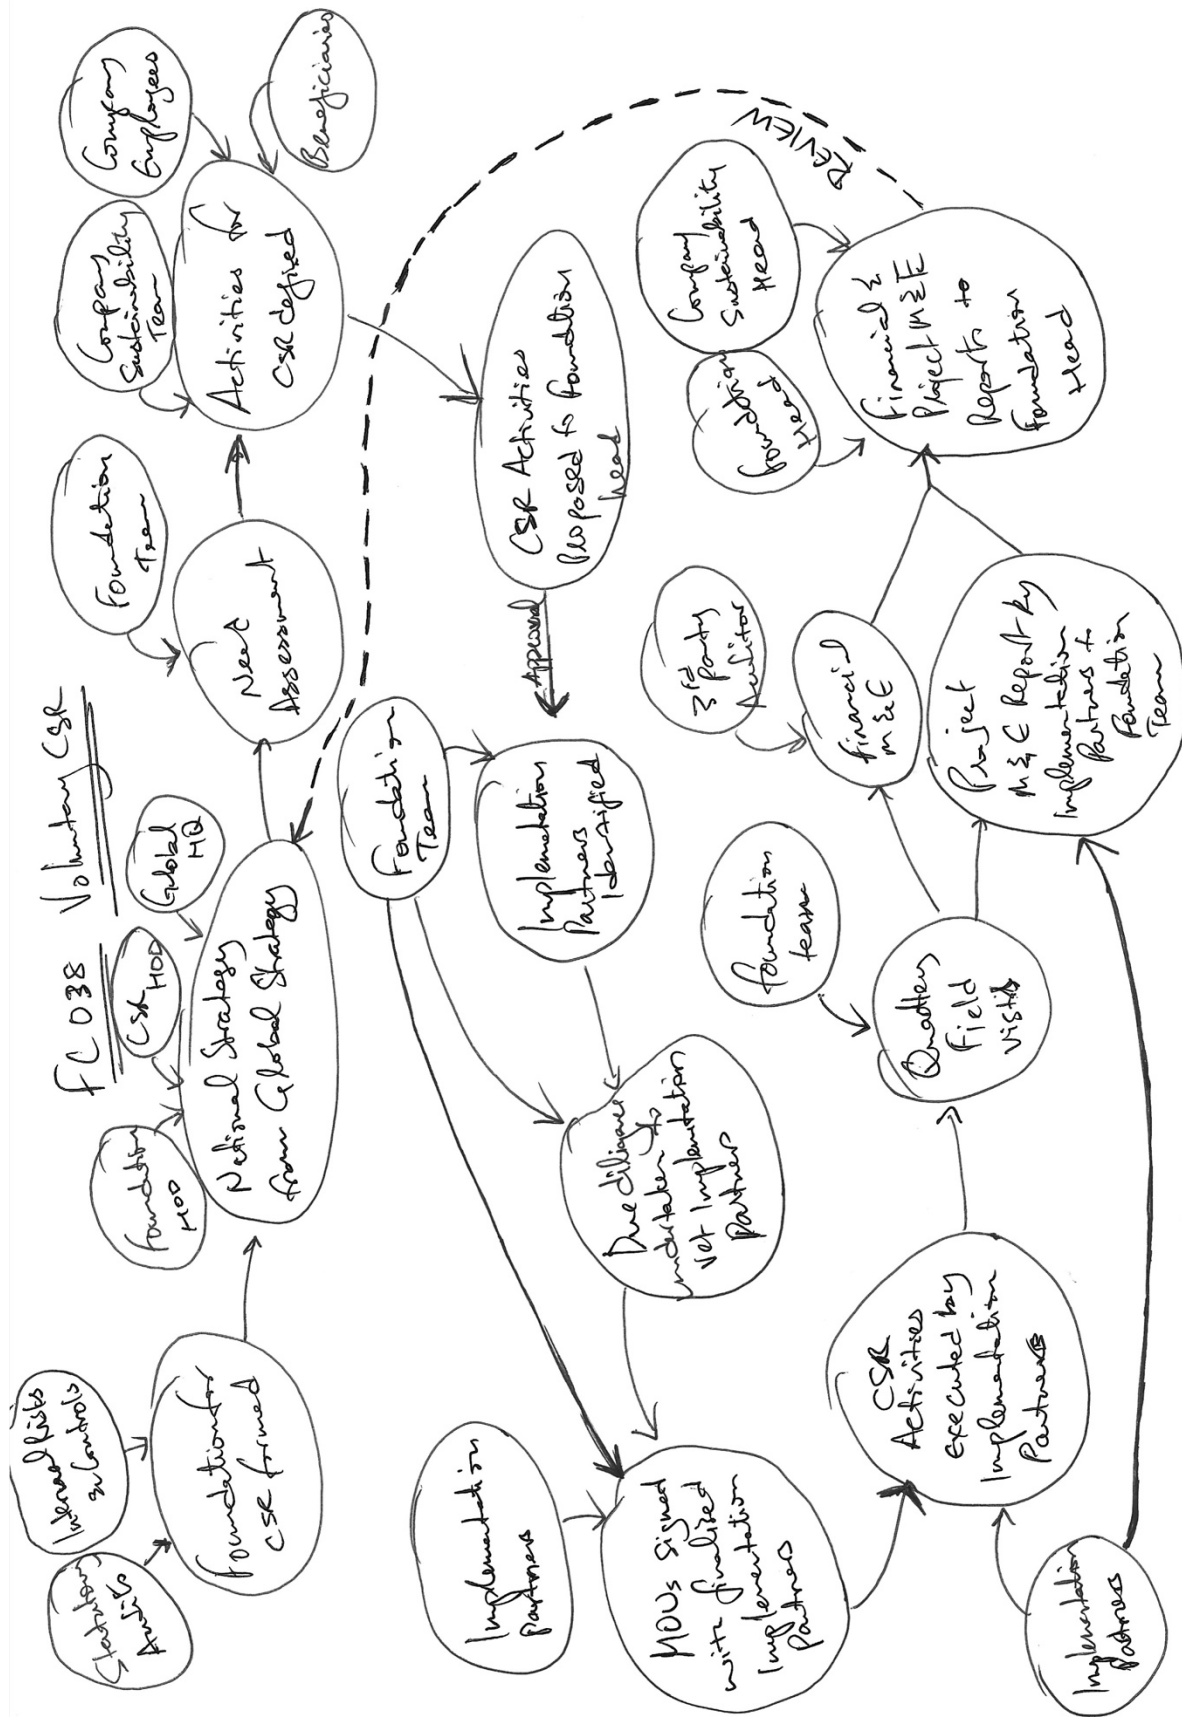 FC 038 Voluntary CSR
Statutory
Audits
Internal Risks
& Controls
Foundation for
CSR formed
Foundation
HOD
CSR
HOD
Global
HQ
National Strategy
from Global Strategy
Foundation
Team
Need
Assessment
Company
Sustainability
Team
Company
Employees
Beneficiaries
Activities for
CSR defined
CSR Activities
Proposed to Foundation
head
Approved
Foundation
Team
Implementation
Partners
Identified
Due diligence
undertaken to
vet Implementation
Partners
Implementation
Partners
MOUs signed
with finalized
Implementation
Partners
Implementation
Partners
CSR
Activities
executed by
Implementation
Partners
Foundation
team
Quarterly
Field
Visits
3rd Party
Auditor
Financial
M&E
Project
M&E Report by
Implementation
Partners to
Foundation
Team
Foundation
Head
Company
Sustainability
Head
Financial &
Project M&E
Reports to
Foundation
Head
REVIEW